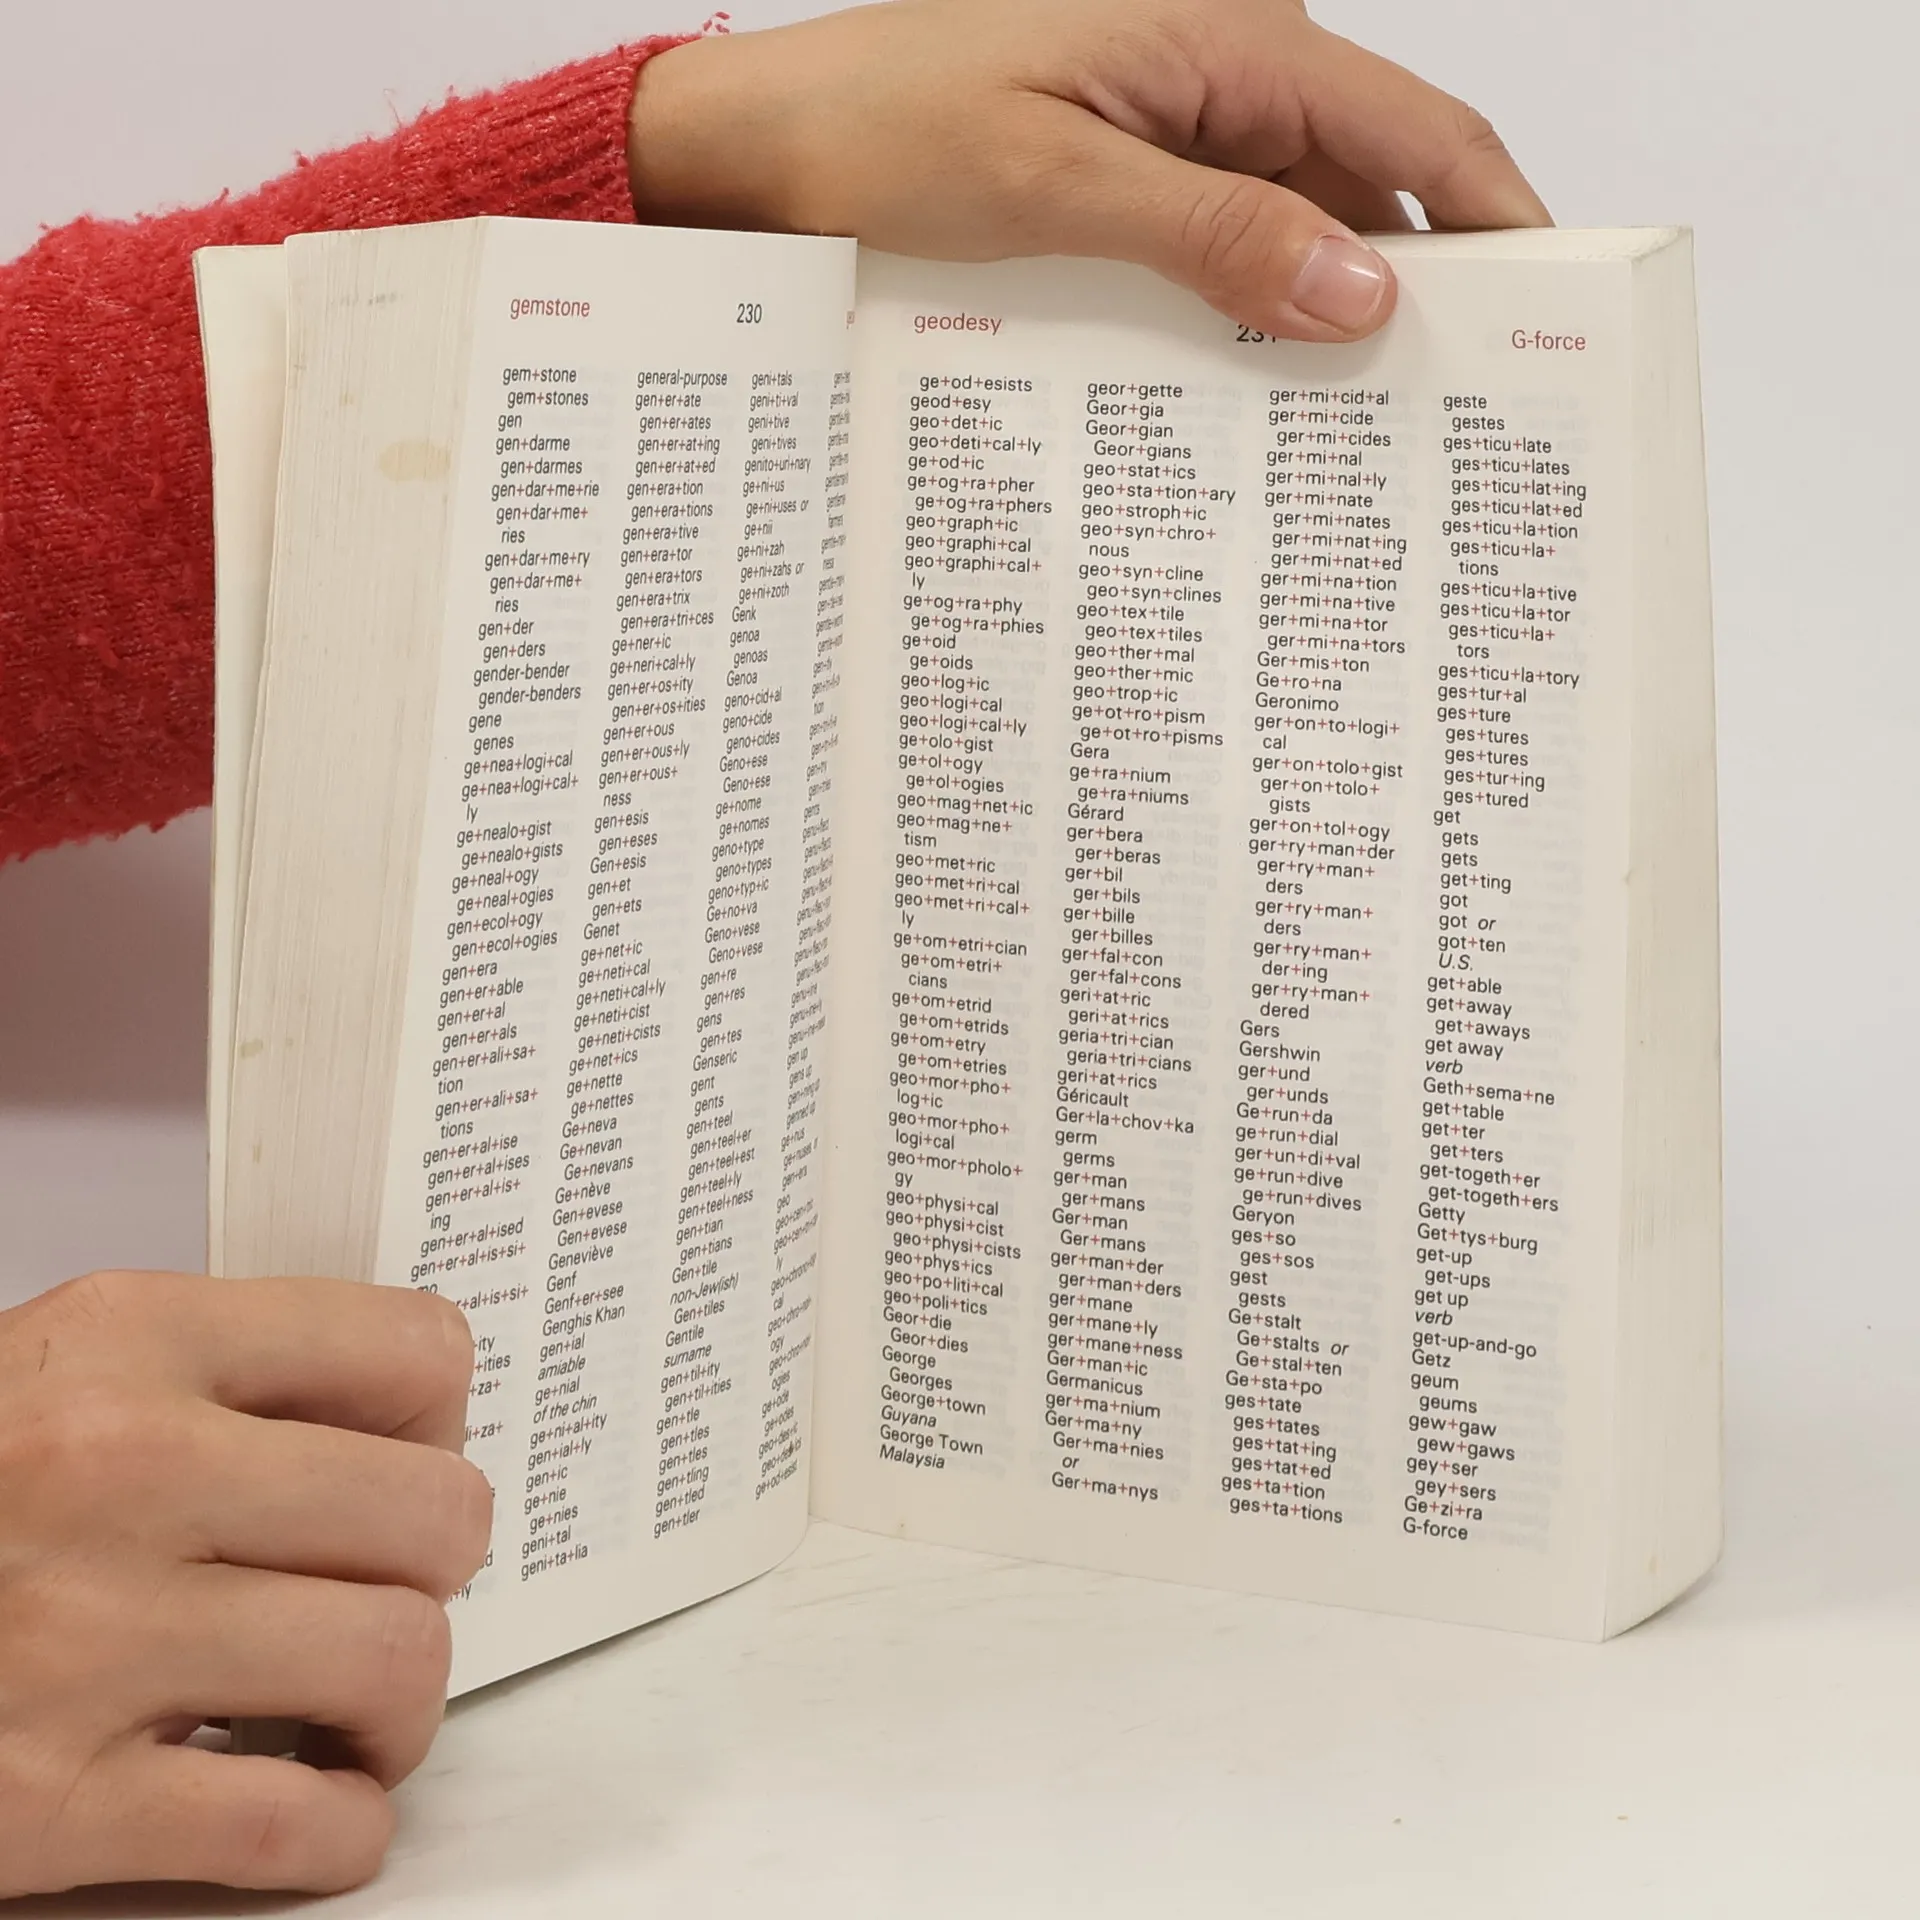 gemstone
230
gem+stone
gem+stones
gen
gen+darme
gen+darmes
gen+dar+me+rie
gen+dar+me+
ries
gen+dar+me+ry
gen+dar+me+
ries
gen+der
gen+ders
gender-bender
gender-benders
gene
genes
ge+nea+logi+cal
ge+nea+logi+cal+
ly
ge+nealo+gist
ge+nealo+gists
ge+neal+ogy
ge+neal+ogies
gen+ecol+ogy
gen+ecol+ogies
gen+era
gen+er+able
gen+er+al
gen+er+als
gen+er+ali+sa+
tion
gen+er+ali+sa+
tions
gen+er+al+ise
gen+er+al+ises
gen+er+al+is+
ing
gen+er+al+ised
gen+er+al+is+si+
mo
er+al+is+si+
+ity
+ities
+za+
li+za+
general-purpose
gen+er+ate
gen+er+ates
gen+er+at+ing
gen+er+at+ed
gen+era+tion
gen+era+tions
gen+era+tive
gen+era+tor
gen+era+tors
gen+era+trix
gen+era+tri+ces
ge+ner+ic
ge+neri+cal+ly
gen+er+os+ity
gen+er+os+ities
gen+er+ous
gen+er+ous+ly
gen+er+ous+
ness
gen+esis
gen+eses
Gen+esis
gen+et
gen+ets
Genet
ge+net+ic
ge+neti+cal
ge+neti+cal+ly
ge+neti+cist
ge+neti+cists
ge+net+ics
ge+nette
ge+nettes
Ge+neva
Ge+nevan
Ge+nevans
Ge+nève
Gen+evese
Gen+evese
Geneviève
Genf
Genf+er+see
Genghis Khan
gen+ial
amiable
ge+nial
of the chin
ge+ni+al+ity
gen+ial+ly
gen+ic
ge+nie
ge+nies
geni+tal
geni+ta+lia
geni+tals
geni+ti+val
geni+tive
geni+tives
genito+uri+nary
ge+ni+us
ge+ni+uses or
ge+nii
ge+ni+zah
ge+ni+zahs or
ge+ni+zoth
Genk
genoa
genoas
Genoa
geno+cid+al
geno+cide
geno+cides
Geno+ese
Geno+ese
ge+nome
ge+nomes
geno+type
geno+types
geno+typ+ic
Ge+no+va
Geno+vese
Geno+vese
gen+re
gen+res
gens
gen+tes
Genseric
gent
gents
gen+teel
gen+teel+er
gen+teel+est
gen+teel+ly
gen+teel+ness
gen+tian
gen+tians
Gen+tile
non-Jew(ish)
Gen+tiles
Gentile
surname
gen+til+ity
gen+til+ities
gen+tle
gen+tles
gen+tles
gen+tling
gen+tled
gen+tler
geodesy
23
G-force
ge+od+esists
geod+esy
geo+det+ic
geo+deti+cal+ly
ge+od+ic
ge+og+ra+pher
ge+og+ra+phers
geo+graph+ic
geo+graphi+cal
geo+graphi+cal+
ly
ge+og+ra+phy
ge+og+ra+phies
ge+oid
ge+oids
geo+log+ic
geo+logi+cal
geo+logi+cal+ly
ge+olo+gist
ge+ol+ogy
ge+ol+ogies
geo+mag+net+ic
geo+mag+ne+
tism
geo+met+ric
geo+met+ri+cal
geo+met+ri+cal+
ly
ge+om+etri+cian
ge+om+etri+
cians
ge+om+etrid
ge+om+etrids
ge+om+etry
ge+om+etries
geo+mor+pho+
log+ic
geo+mor+pho+
logi+cal
geo+mor+pholo+
gy
geo+physi+cal
geo+physi+cist
geo+physi+cists
geo+phys+ics
geo+po+liti+cal
geo+poli+tics
Geor+die
Geor+dies
George
Georges
George+town
Guyana
George Town
Malaysia
geor+gette
Geor+gia
Geor+gian
Geor+gians
geo+stat+ics
geo+sta+tion+ary
geo+stroph+ic
geo+syn+chro+
nous
geo+syn+cline
geo+syn+clines
geo+tex+tile
geo+tex+tiles
geo+ther+mal
geo+ther+mic
geo+trop+ic
ge+ot+ro+pism
ge+ot+ro+pisms
Gera
ge+ra+nium
ge+ra+niums
Gérard
ger+bera
ger+beras
ger+bil
ger+bils
ger+bille
ger+billes
ger+fal+con
ger+fal+cons
geri+at+ric
geri+at+rics
geria+tri+cian
geria+tri+cians
geri+at+rics
Géricault
Ger+la+chov+ka
germ
germs
ger+man
ger+mans
Ger+man
Ger+mans
ger+man+der
ger+man+ders
ger+mane
ger+mane+ly
ger+mane+ness
Ger+man+ic
Germanicus
ger+ma+nium
Ger+ma+ny
Ger+ma+nies
or
Ger+ma+nys
ger+mi+cid+al
ger+mi+cide
ger+mi+cides
ger+mi+nal
ger+mi+nal+ly
ger+mi+nate
ger+mi+nates
ger+mi+nat+ing
ger+mi+nat+ed
ger+mi+na+tion
ger+mi+na+tive
ger+mi+na+tor
ger+mi+na+tors
Ger+mis+ton
Ge+ro+na
Geronimo
ger+on+to+logi+
cal
ger+on+tolo+gist
ger+on+tolo+
gists
ger+on+tol+ogy
ger+ry+man+der
ger+ry+man+
ders
ger+ry+man+
ders
ger+ry+man+
der+ing
ger+ry+man+
dered
Gers
Gershwin
ger+und
ger+unds
Ge+run+da
ge+run+dial
ger+un+di+val
ge+run+dive
ge+run+dives
Geryon
ges+so
ges+sos
gest
gests
Ge+stalt
Ge+stalts or
Ge+stal+ten
Ge+sta+po
ges+tate
ges+tates
ges+tat+ing
ges+tat+ed
ges+ta+tion
ges+ta+tions
geste
gestes
ges+ticu+late
ges+ticu+lates
ges+ticu+lat+ing
ges+ticu+lat+ed
ges+ticu+la+tion
ges+ticu+la+
tions
ges+ticu+la+tive
ges+ticu+la+tor
ges+ticu+la+
tors
ges+ticu+la+tory
ges+tur+al
ges+ture
ges+tures
ges+tures
ges+tur+ing
ges+tured
get
gets
gets
get+ting
got
got or
got+ten
U.S.
get+able
get+away
get+aways
get away
verb
Geth+sema+ne
get+table
get+ter
get+ters
get-togeth+er
get-togeth+ers
Getty
Get+tys+burg
get-up
get-ups
get up
verb
get-up-and-go
Getz
geum
geums
gew+gaw
gew+gaws
gey+ser
gey+sers
Ge+zi+ra
G-force